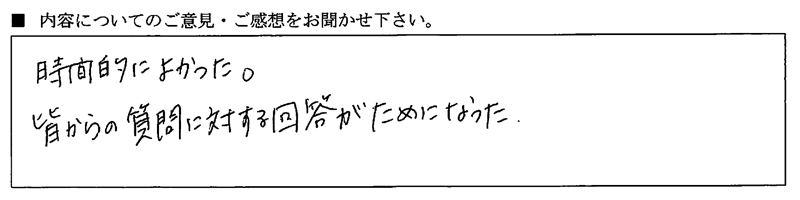 ■ 内容についてのご意見・ご感想をお聞かせ下さい。
時間的によかった。
皆からの質問に対する回答がためになった.